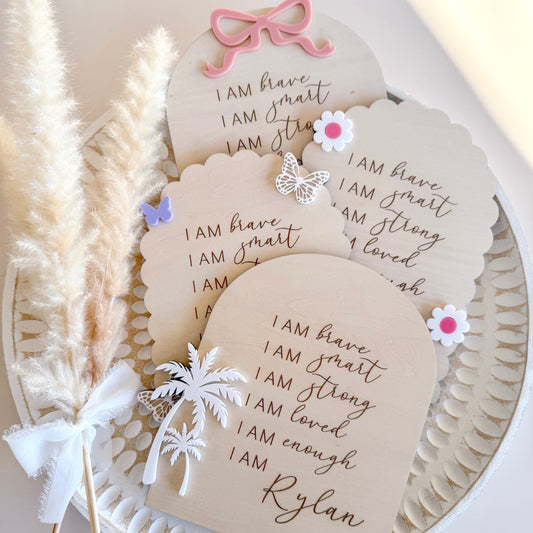 I AM brave
I AM smart
I AM strong
I AM brave
I AM smart
I AM strong
I AM loved
I AM brave
I AM smart
I AM
I AM brave
I AM smart
I AM strong
I AM loved
I AM enough
I AM
Rylan